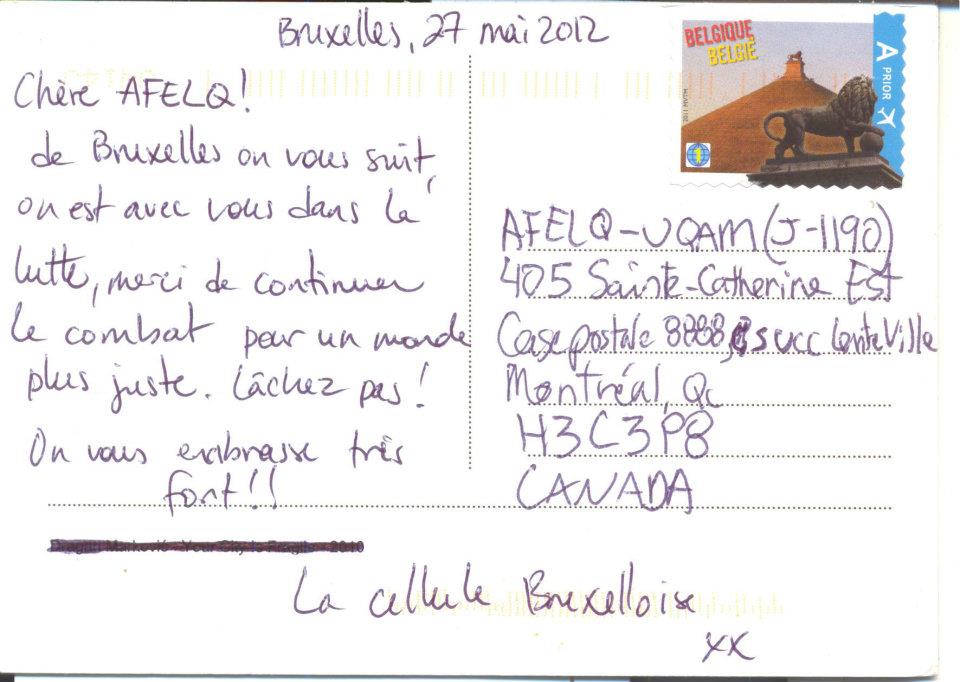 Bruxelles, 27 mai 2012
Chère AFELQ!
de Bruxelles on vous suit,
on est avec vous dans la
lutte, merci de continuer
le combat pour un monde
plus juste. Lâchez pas!
On vous embrasse très
fort!!
BELGIQUE
BELGIË
A PRIOR
2011 MVTM
1
AFELQ-UQAM (J-1190)
405 Sainte-Catherine Est
Case postale 8888, succ CentreVille
Montréal, Qc
H3C3P8
CANADA
Dragan Marković - Your City Is Fragile - 2010
La cellule Bruxelloise
xx